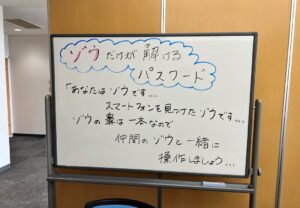 ゾウだけが解ける
パスワード
「あなたはゾウです…
スマートフォンを見つけたゾウです…
ゾウの鼻は一本なので
仲間のゾウと一緒に
操作しましょう…